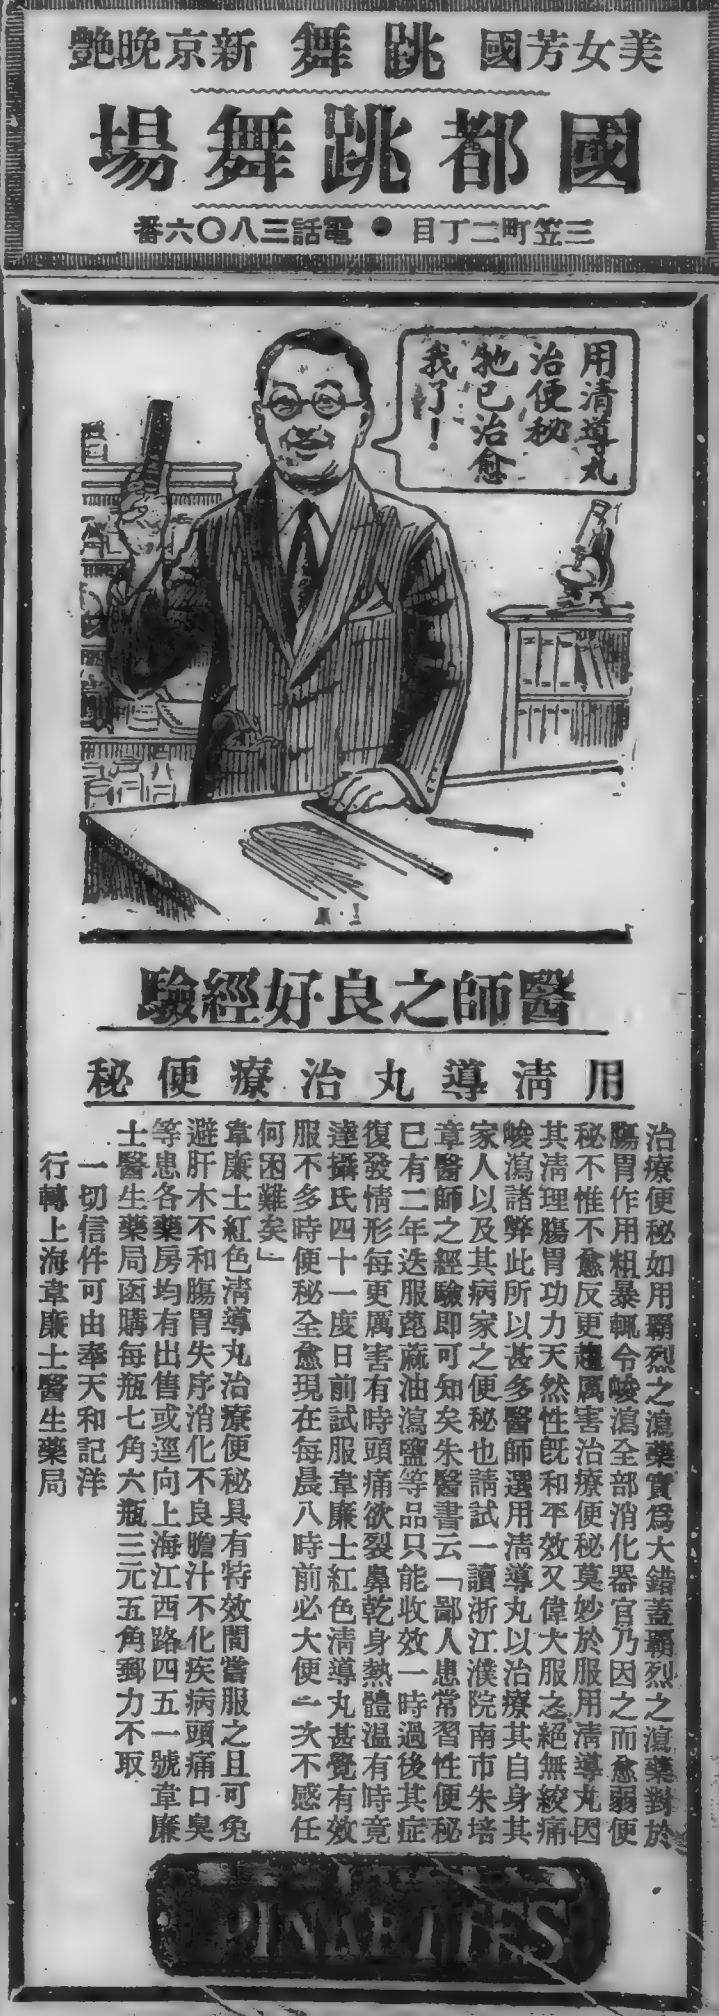 美女芳國 跳舞 新京晚艶
國都跳舞場
三笠町二丁目 ● 電話三八〇六番
用清導丸
治便秘
牠已治愈
我了！
醫師之良好經驗
用清導丸治療便秘
治療便秘如用霸烈之瀉藥實爲大錯蓋霸烈之瀉藥對於
腸胃作用粗暴輒令峻瀉全部消化器官乃因之而愈弱便
秘不惟不愈反更趨厲害治療便秘莫妙於服用清導丸因
其清理腸胃功力天然性旣和平效又偉大服之絕無絞痛
峻瀉諸弊此所以甚多醫師選用清導丸以治療其自身其
家人以及其病家之便秘也請試一讀浙江濮院南市朱培
章醫師之經驗即可知矣朱醫書云「鄙人患常習性便秘
已有二年迭服蓖蔴油瀉鹽等品只能收效一時過後其症
復發情形每更厲害有時頭痛欲裂鼻乾身熱體溫有時竟
達攝氏四十一度日前試服韋廉士紅色清導丸甚覺有效
服不多時便秘全愈現在每晨八時前必大便一次不感任
何困難矣」
韋廉士紅色清導丸治療便秘具有特效間嘗服之且可免
避肝木不和腸胃失序消化不良膽汁不化疾病頭痛口臭
等患各藥房均有出售或逕向上海江西路四五一號韋廉
士醫生藥局函購每瓶七角六瓶三元五角郵力不取
一切信件可由奉天和記洋
行轉上海韋廉士醫生藥局
PINKETTES